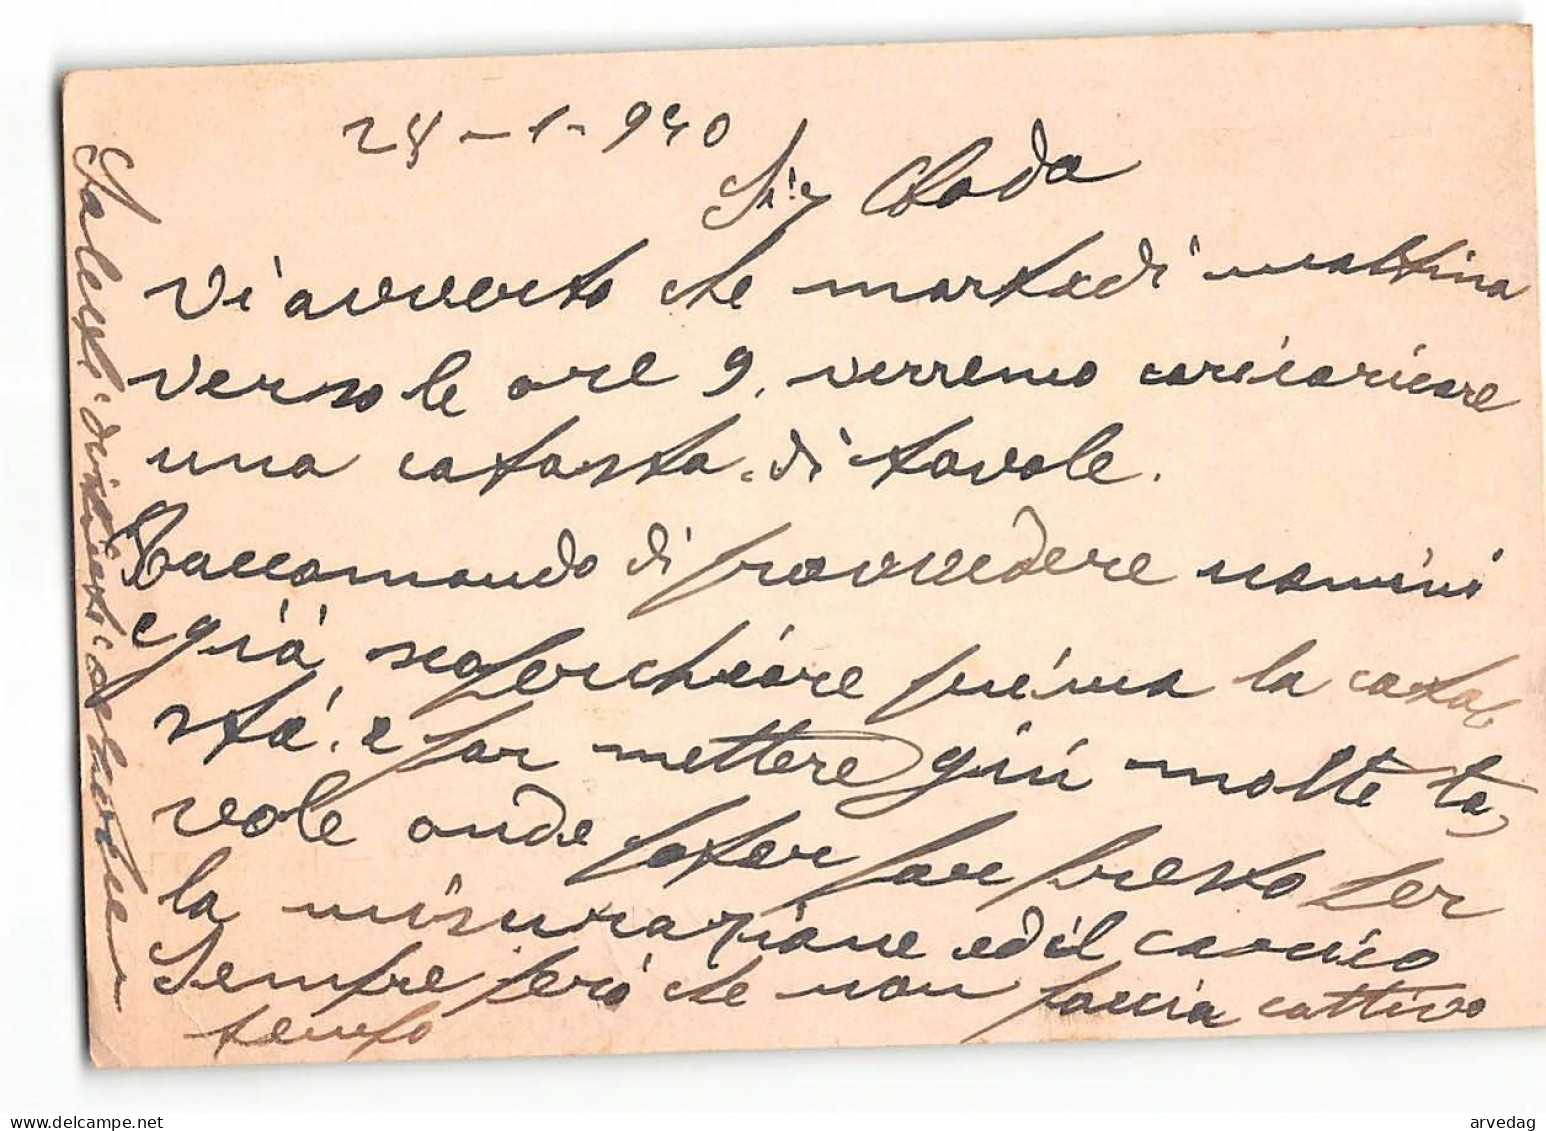 28-1-940
Sig Chada
Vi avverto che martedì mattina
verso le ore 9. verremo caricaricare
una catasta di tavole.
Raccomando di provvedere uomini
e già scoperchiare prima la cata
sta. e far mettere giù molte ta,
vole onde poter far presto per
la misurazione ed il carico
Sempre però che non faccia cattivo
tempo
Saluti distinti
arvedag